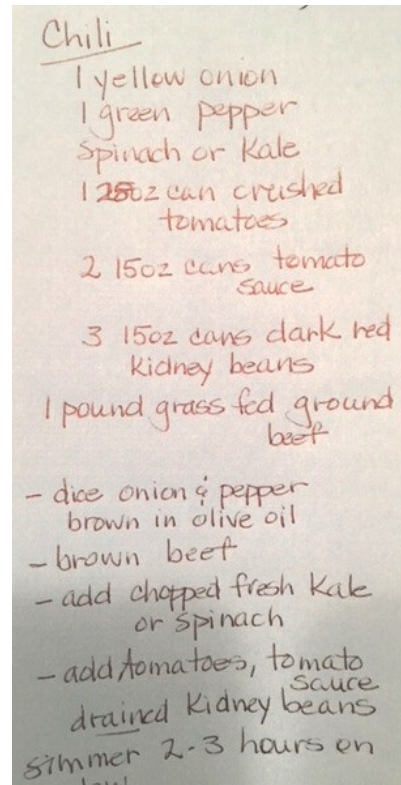 Chili
1 yellow onion
1 green pepper
Spinach or Kale
1 28oz can crushed
tomatoes
2 15oz cans tomato
sauce
3 15oz cans dark red
kidney beans
1 pound grass fed ground
beef
- dice onion & pepper
brown in olive oil
- brown beef
- add chopped fresh Kale
or spinach
- add tomatoes, tomato
sauce
drained Kidney beans
simmer 2-3 hours on